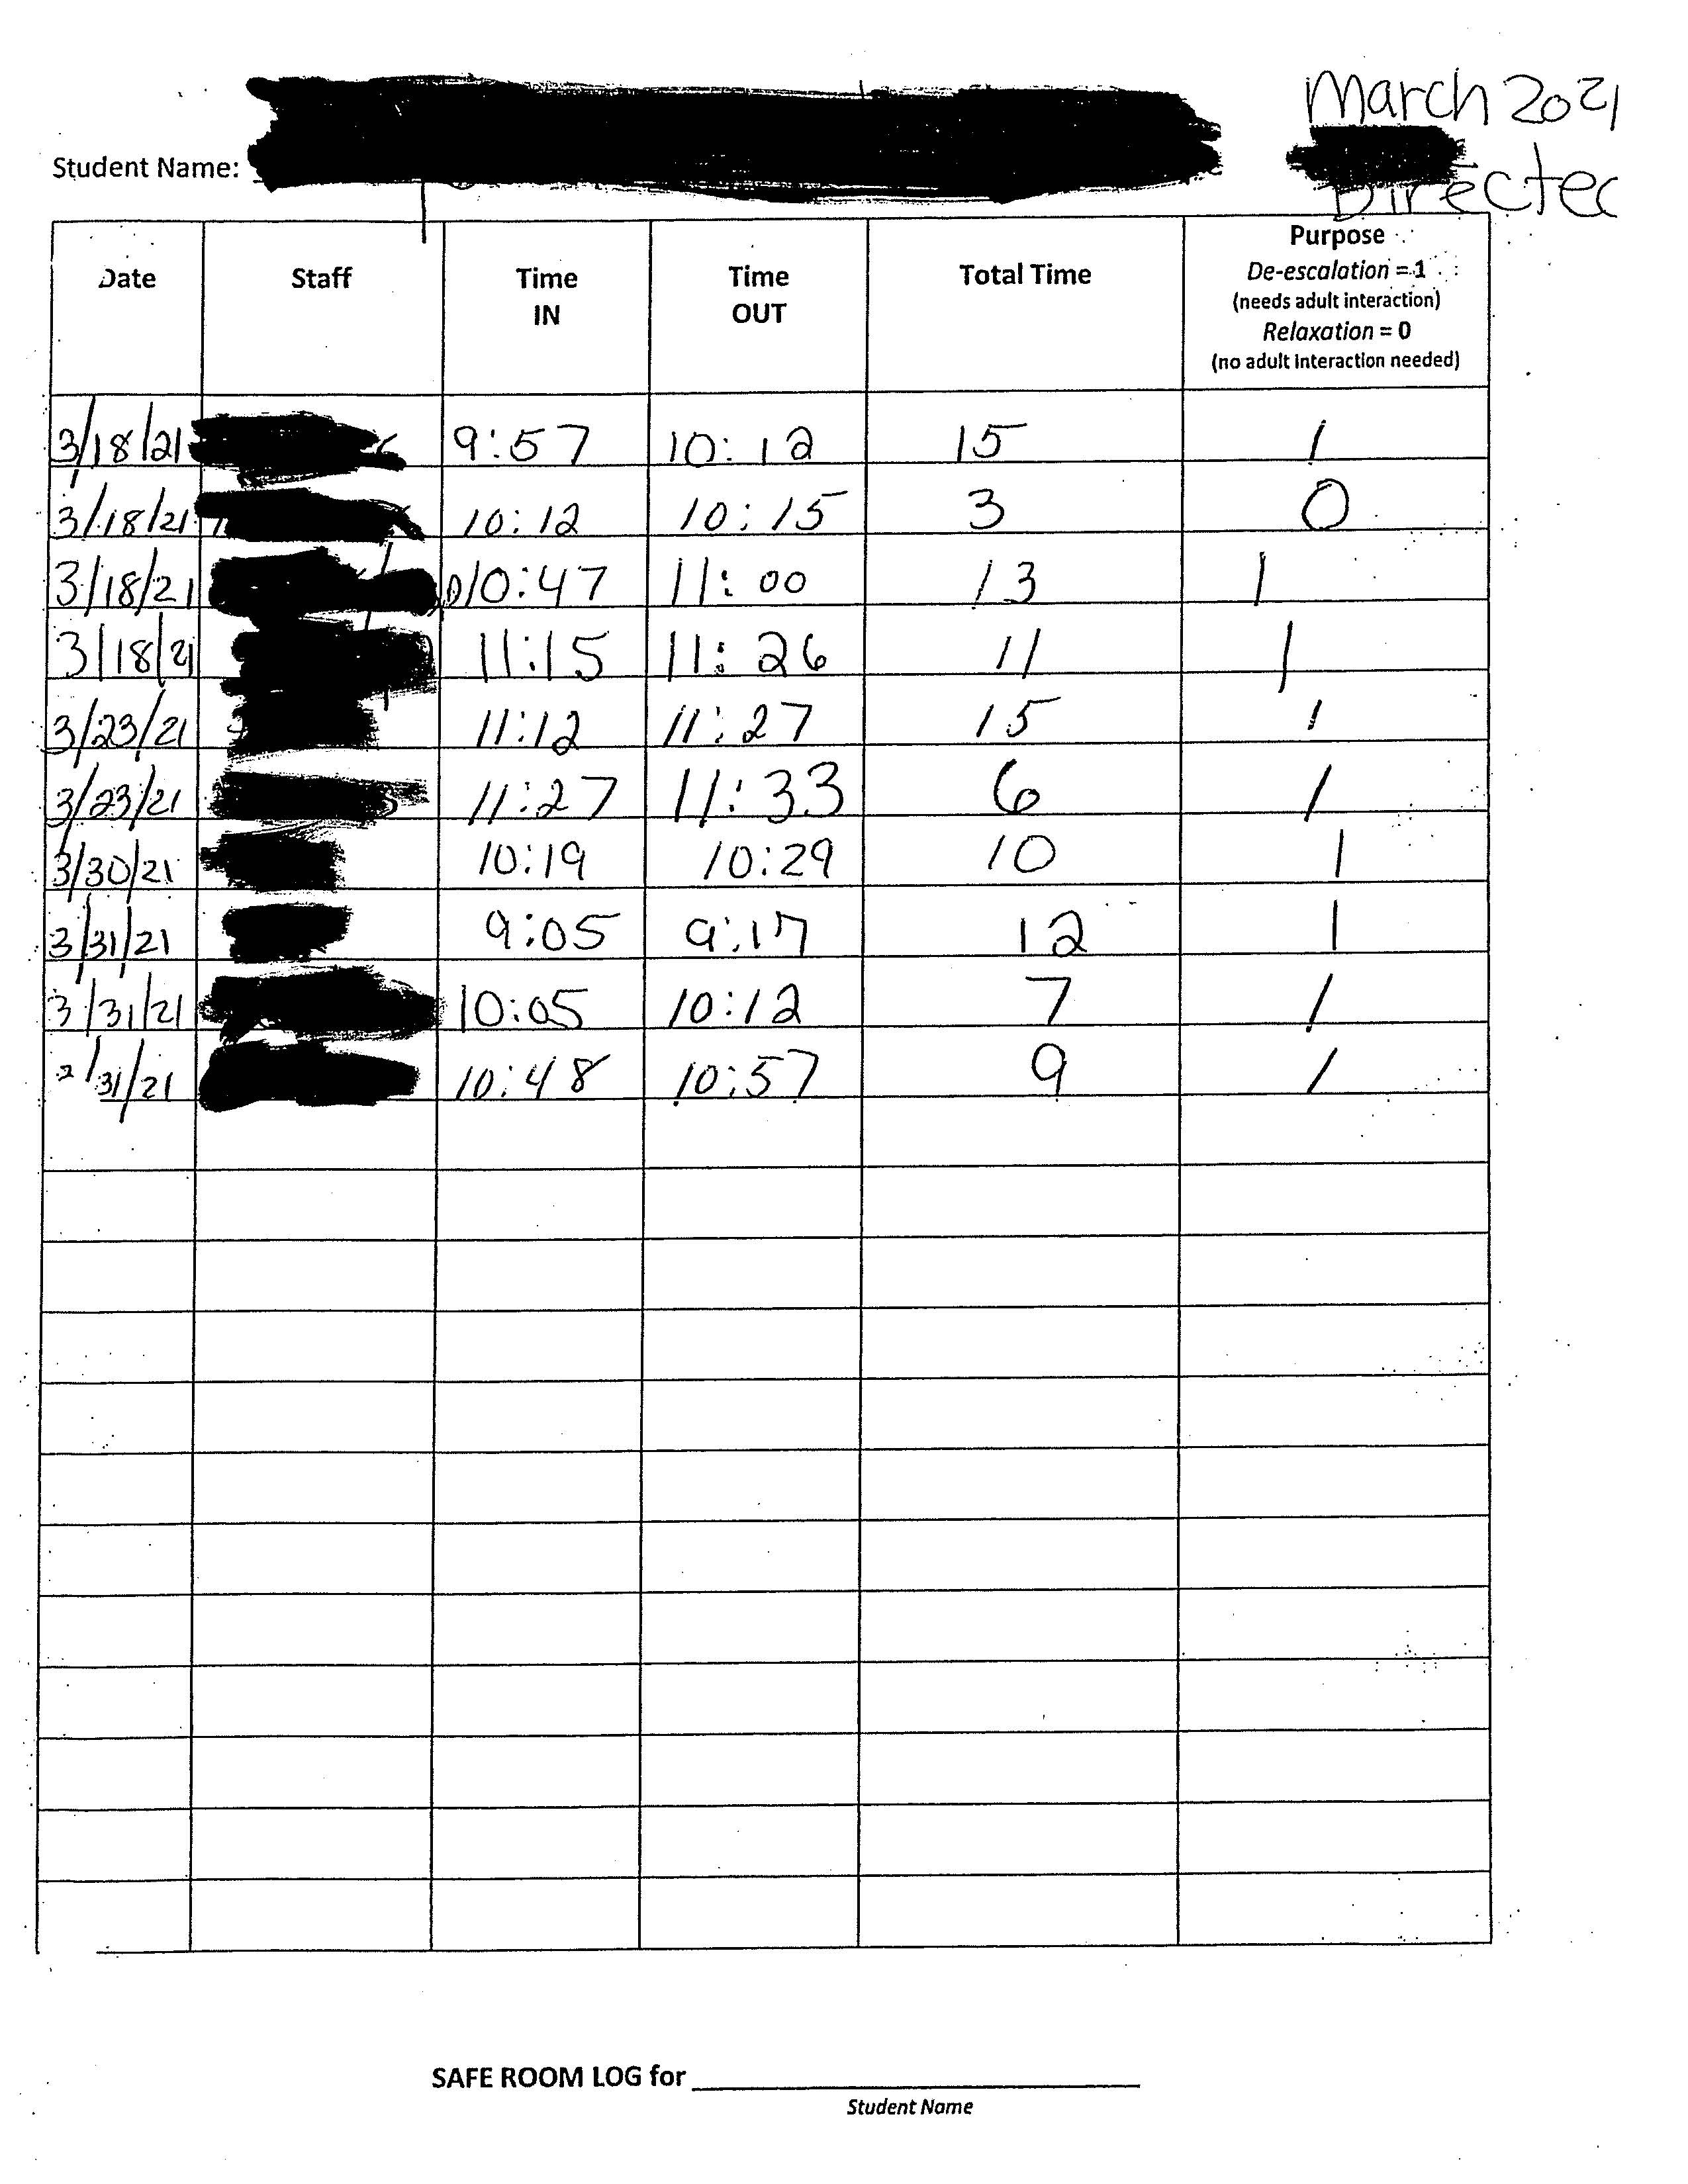 March 2021
Student Name:
Directed
Date Staff Time IN Time OUT Total Time Purpose
De-escalation = 1
(needs adult interaction)
Relaxation = 0
(no adult interaction needed)
3/18/21 9:57 10:12 15 1
3/18/21 10:12 10:15 3 0
3/18/21 10:47 11:00 13 1
3/18/21 11:15 11:26 11 1
3/23/21 11:12 11:27 15 1
3/23/21 11:27 11:33 6 1
3/30/21 10:19 10:29 10 1
3/31/21 9:05 9:17 12 1
3/31/21 10:05 10:12 7 1
/31/21 10:48 10:57 9 1
SAFE ROOM LOG for
Student Name